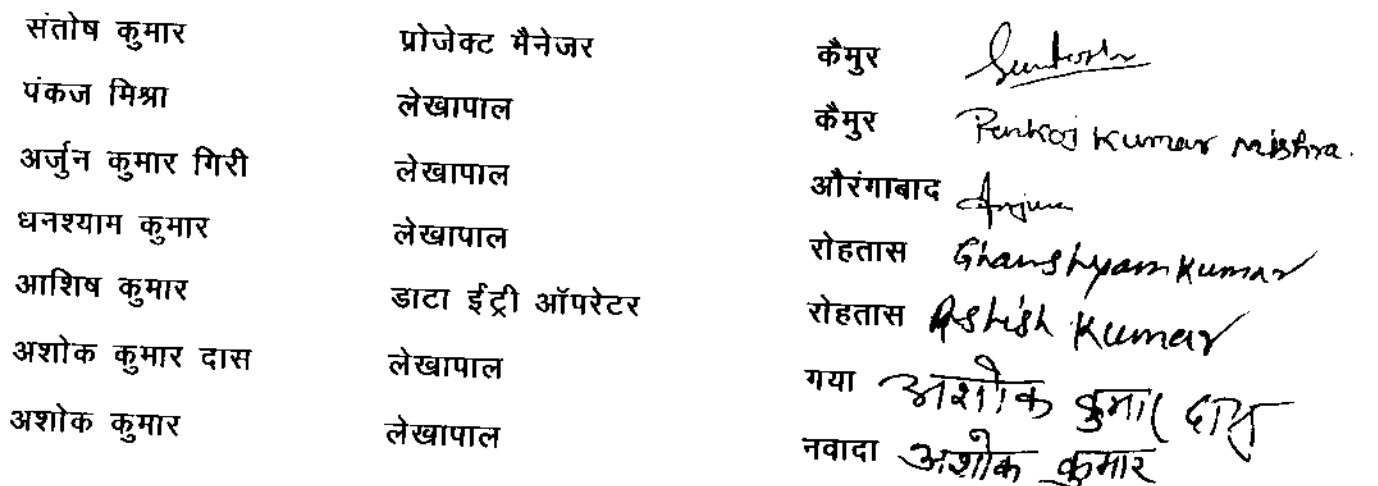 संतोष कुमार प्रोजेक्ट मैनेजर कैमुर Suntosh
पंकज मिश्रा लेखापाल कैमुर Pankaj Kumar Mishra.
अर्जुन कुमार गिरी लेखापाल औरंगाबाद Arjun
धनश्याम कुमार लेखापाल रोहतास Ghanshyam Kumar
आशिष कुमार डाटा ईट्री ऑपरेटर रोहतास Ashish Kumar
अशोक कुमार दास लेखापाल गया अशोक कुमार दास
अशोक कुमार लेखापाल नवादा अशोक कुमार